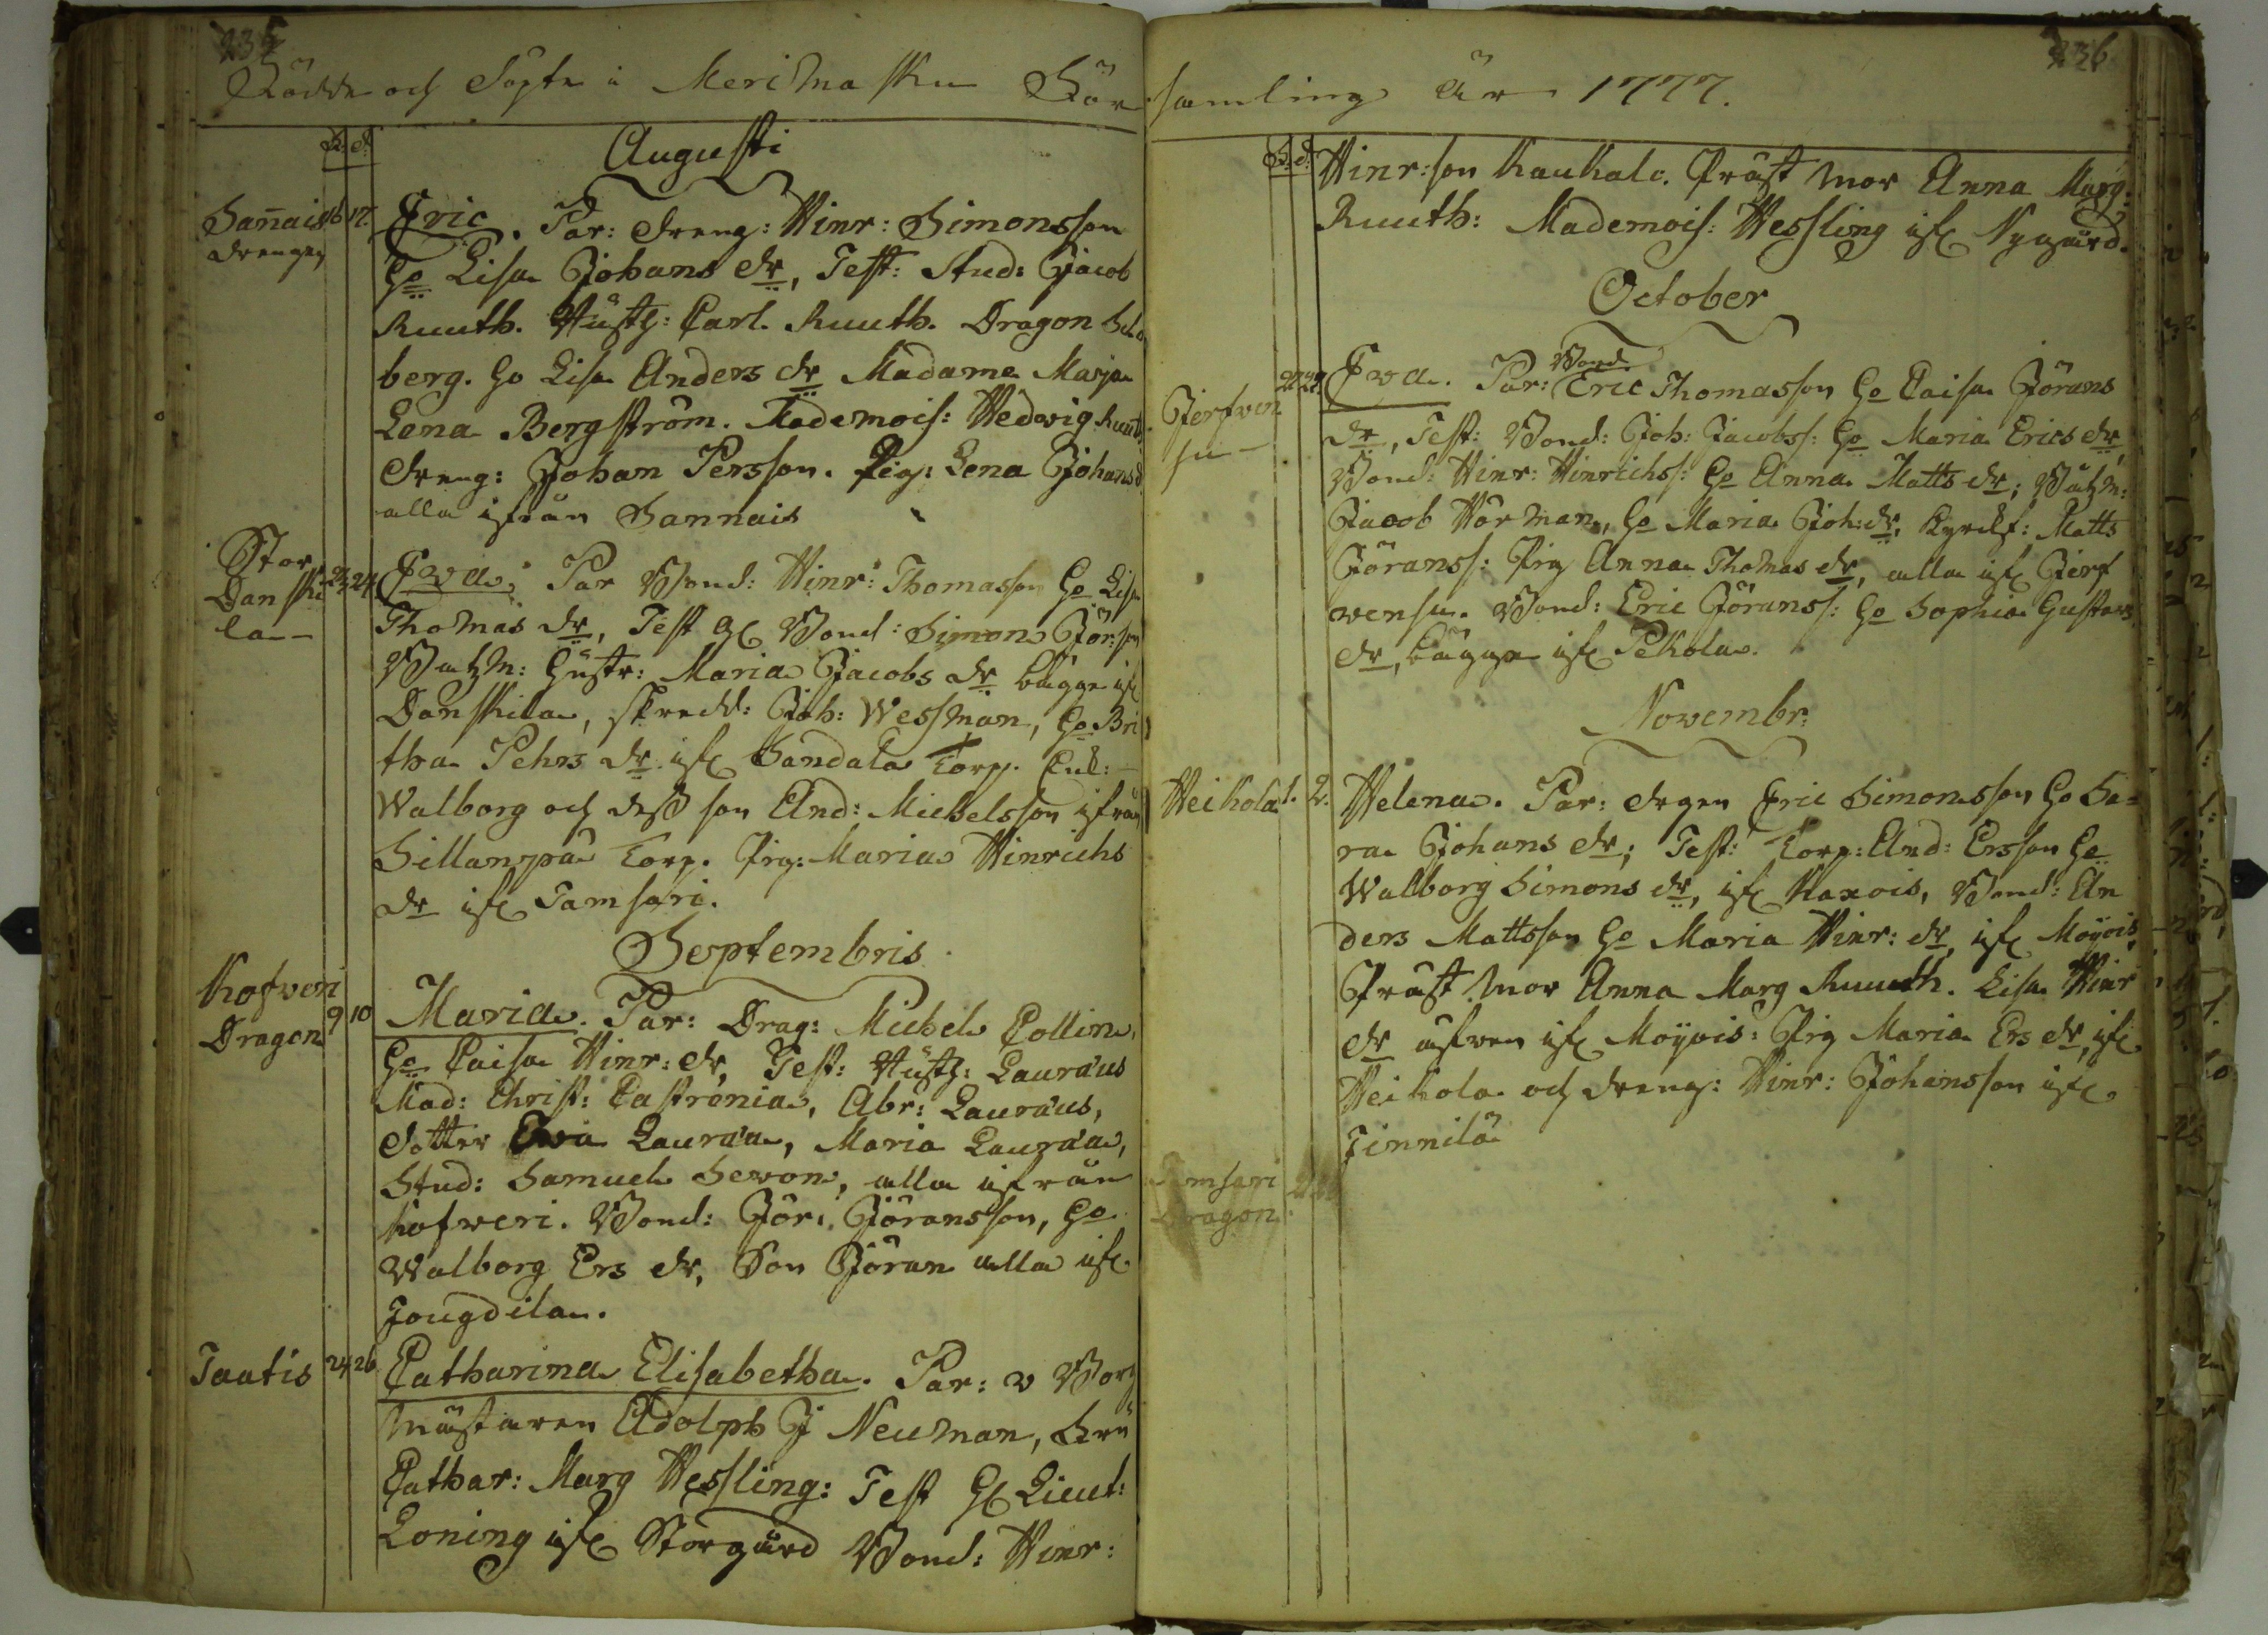 235
Födde och Döpte i Merimasku För
F. d.
Augusti
Sannais 16 17. Eric. Par: Dreng: Hinr: Simonsson
Drengen
Ho Lisa Johans dr, Test: Stud: Jacob
Ruuth. Carl Ruuth. Dragon
berg. Ho Lisa Anders dr Madame Marja
Lena Bergström. Mademois: Hedvig Ruuth
Dreng: Johan Persson. Pig: Lena Johansd
alla ifrån Sannais
Stor
Danski
la
23 24 Ewa. Par Bond: Hinr: Thomasson Ho Lisa
Thomas dr, Test Bond: Simon Jör:son
Båtzm: Hustr: Maria Jacobs dr bägge if
Danskila, skredd: Joh: Wessman, Ho Bri
tha Pehrs dr if Sandala Torp. Enk:
Walborg och dess son And: Michelsson ifrån
Sillanpä Torp. Pig: Maria Hinrichs
dr if Tamsari.
Septembris
Kofveri
Dragon
9 10 Maria. Par: Drag: Michel Collin,
Ho Caisa Hinr: dr, Test: Lauräus
Mad: Christ: Caströnia, Abr: Lauräus,
Dotter Ewa Lauräa, Maria Lauräa,
Stud: Samuel Sevon, alla ifrån
Kofveri. Bond: Jör: Jöransson, Ho
Walborg Ers dr, Son Jöran alla if
Jougdila.
Taatis 24 26 Catharina Elisabetha. Par: v Borg
mästaren Adolph J Neuman, Fru
Cathar: Marg Hessling: Test H Lieut:
Loning if Storgård Bond: Hinr:
236
samling År 1777.
F. d.
Hinr:son Kaukalo. Präst mor Anna Marg:
Ruuth: Mademois: Hessling if Nygård.
October
Jerfven
su
Ewa. Par: Bond Eric Thomasson Ho Caisa Jörans
dr, Test: Bond: Joh: Jacobss: Ho Maria Erics dr
Bond: Hinr: Hinrichss: Ho Anna Matts dr; Båtzm:
Jacob Hörman, Ho Maria Joh: dr, Matts
Jöranss: Pig Anna Thomas dr, alla if Jerf
wensu. Bond: Eric Jöranss: Ho Sophia Gustavs
dr, bägge if Pekola.
Novembr:
Heikola 1. 2. Helena. Par: drgen Eric Simonsson Ho Sa=
ra Johans dr; Test: Torp: And: Ersson Ho
Walborg Simons dr, if Kaxois, Bond: An
ders Mattsson Ho Maria Hinr: dr, if Moyois,
Präst mor Anna Marg Ruuth. Lisa Hinr
dr äfven if Moyois: Pig Maria Ers dr, if
Heikola och dreng: Hinr: Johansson if
Tinnilä
Tamsari
Dragon